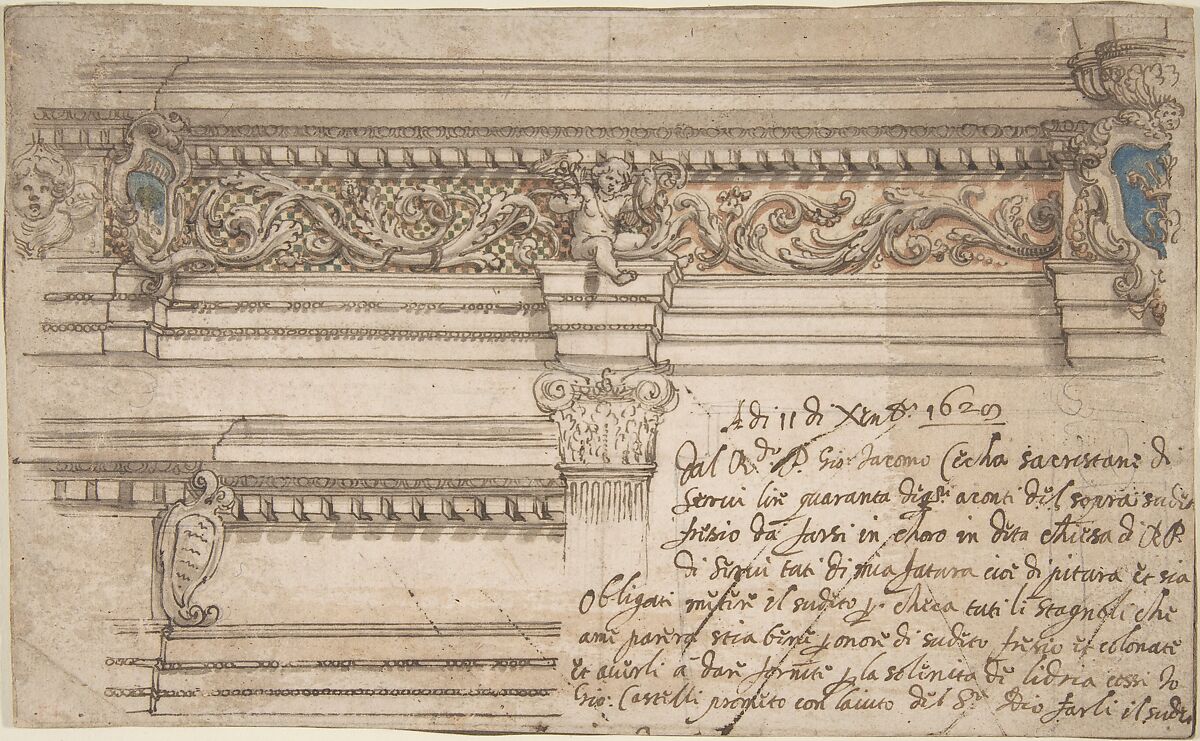 A di 11 di Xm̃bre 1628
Dal R.do P. Gio: Jacomo Cecha sacristano di
Servi lire quaranta aconti dil sopra
fresio da farsi in choro in dita chiesa di RP
di servi tuti di mia fatura cioe di pitura et sia
Obligati metere il sudeto tuti li stagnoli che
ame parera stia bene p onore di sudeto fresio et colonate
et averli a dare forniti p la solenita di cossi Io
Gio: Castelli prometo con laiuto del Dio farli il